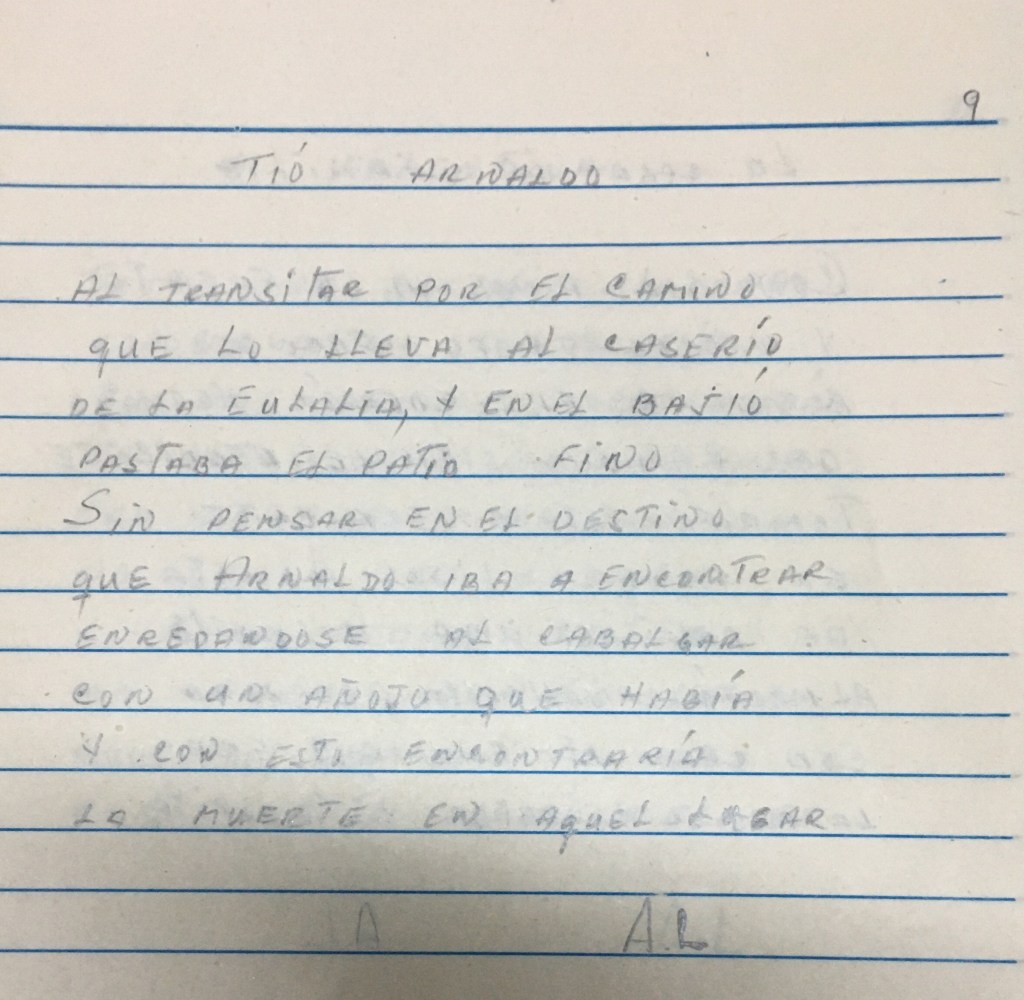 9
TIÓ ARNALDO
AL TRANSITAR POR EL CAMINO
QUE LO LLEVA AL CASERÍO
DE LA EULALIA, Y EN EL BAJIÓ
PASTABA EL PATIO FINO
SIN PENSAR EN EL DESTINO
QUE ARNALDO IBA A ENCONTRAR
ENREDANDOSE AL CABALGAR
CON UN AÑOJO QUE HABÍA
Y CON ESTO ENCONTRARÍA
LA MUERTE EN AQUEL LUGAR
A A.L